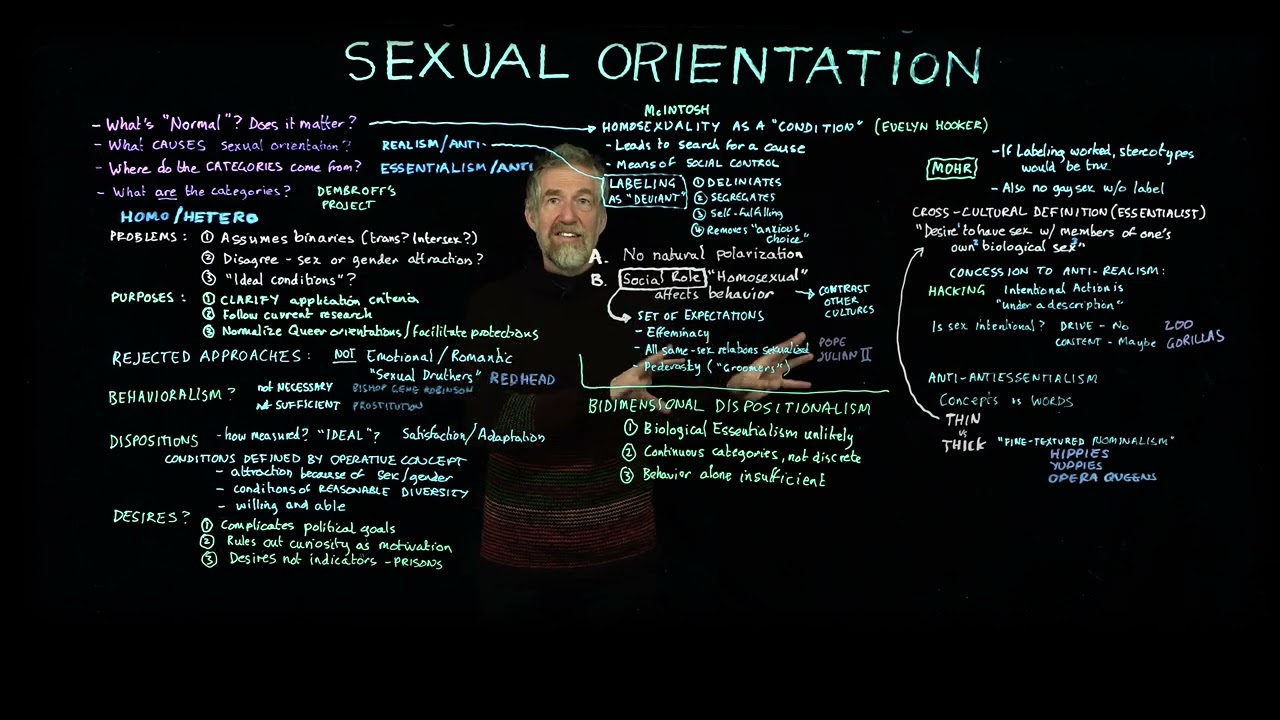 SEXUAL ORIENTATION
- What's "Normal"? Does it matter?
- What CAUSES sexual orientation?
REALISM/ANTI-
- Where do the CATEGORIES come from?
ESSENTIALISM/ANTI
- What are the categories?
DEMBROFF'S
PROJECT
HOMO/HETERO
PROBLEMS: ① Assumes binaries (trans? Intersex?)
② Disagree - sex or gender attraction?
③ "Ideal conditions"?
PURPOSES: ① CLARIFY application criteria
② Follow current research
③ Normalize Queer orientations/facilitate protections
REJECTED APPROACHES: NOT Emotional/Romantic
"Sexual Druthers" REDHEAD
BEHAVIORALISM? not NECESSARY BISHOP GENE ROBINSON
not SUFFICIENT PROSTITUTION
DISPOSITIONS - how measured? "IDEAL"? Satisfaction/Adaptation
CONDITIONS DEFINED BY OPERATIVE CONCEPT
- attraction because of sex/gender
- conditions of REASONABLE DIVERSITY
- willing and able
DESIRES? ① Complicates political goals
② Rules out curiosity as motivation
③ Desires not indicators - PRISONS
McINTOSH
HOMOSEXUALITY AS A "CONDITION" (EVELYN HOOKER)
- Leads to search for a cause
- Means of SOCIAL CONTROL
LABELING
AS "DEVIANT"
① DELINIATES
② SEGREGATES
③ Self-fulfilling
④ Removes "anxious
choice"
A. No natural polarization
B. Social Role "Homosexual"
affects behavior
→ CONTRAST
OTHER
CULTURES
SET OF EXPECTATIONS
- Effeminacy
- All same-sex relations sexualized
- Pederasty ("Groomers")
POPE
JULIAN II
BIDIMENSIONAL DISPOSITIONALISM
① Biological Essentialism unlikely
② Continuous categories, not discrete
③ Behavior alone insufficient
MOHR
- If Labeling worked, stereotypes
would be true
- Also no gay sex w/o label
CROSS-CULTURAL DEFINITION (ESSENTIALIST)
"Desire¹ to have sex w/ members of one's
own² biological sex³"
CONCESSION TO ANTI-REALISM:
HACKING Intentional Action is
"under a description"
Is sex intentional? DRIVE - No ZOO
CONTENT - Maybe GORILLAS
ANTI-ANTIESSENTIALISM
Concepts vs WORDS
THIN
vs
THICK "FINE-TEXTURED NOMINALISM"
HIPPIES
YUPPIES
OPERA QUEENS